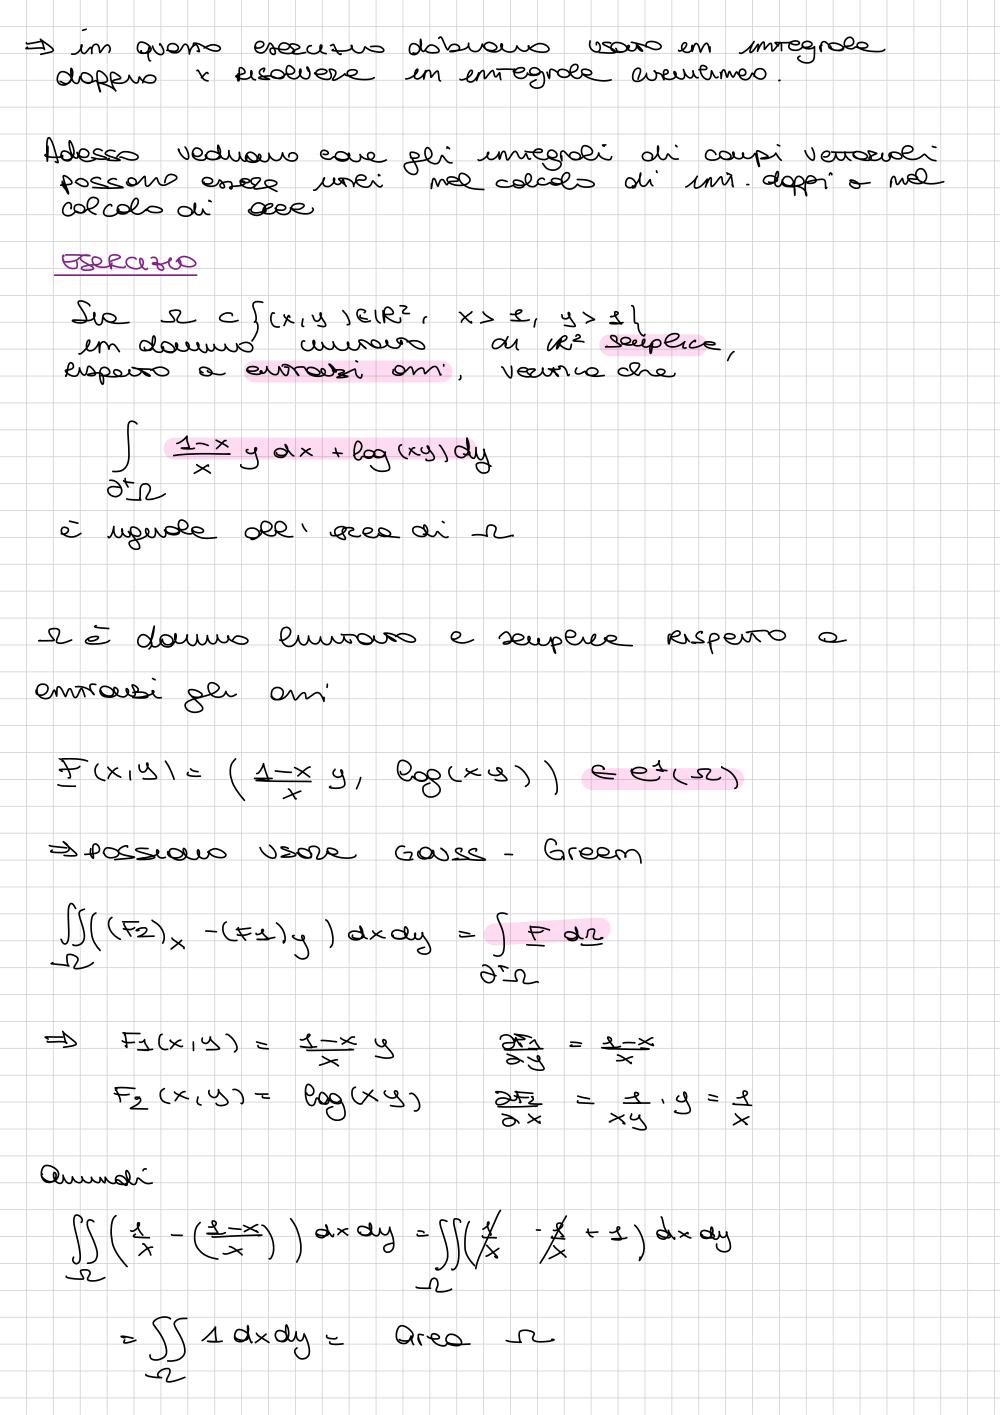 ⇒ in questo esercizio dobbiamo usato un integrale
doppio x risolvere un integrale curvilineo.
Adesso vediamo come gli integrali di campi vettoriali
possono essere utili nel calcolo di int. doppi o nel
calcolo di aree
ESERCIZIO
Sia Ω ⊂ {(x,y) ∈ ℝ², x > 1, y > 1}
un dominio limitato di ℝ² semplice,
rispetto a entrambi assi, verifica che
∫_{∂⁺Ω} (1-x)/x y dx + log(xy) dy
è uguale all' area di Ω
Ω è dominio limitato e semplice rispetto a
entrambi gli assi
F(x,y) = ( (1-x)/x y, log(xy) ) ∈ C¹(Ω)
⇒ possiamo usare Gauss - Green
∬_Ω ((F2)x - (F1)y) dxdy = ∫_{∂⁺Ω} F dr
⇒ F1(x,y) = (1-x)/x y ∂F1/∂y = (1-x)/x
F2(x,y) = log(xy) ∂F2/∂x = 1/(xy) · y = 1/x
Quindi
∬_Ω (1/x - ((1-x)/x)) dxdy = ∬_Ω (1/x - 1/x + 1) dxdy
= ∬_Ω 1 dxdy = area Ω